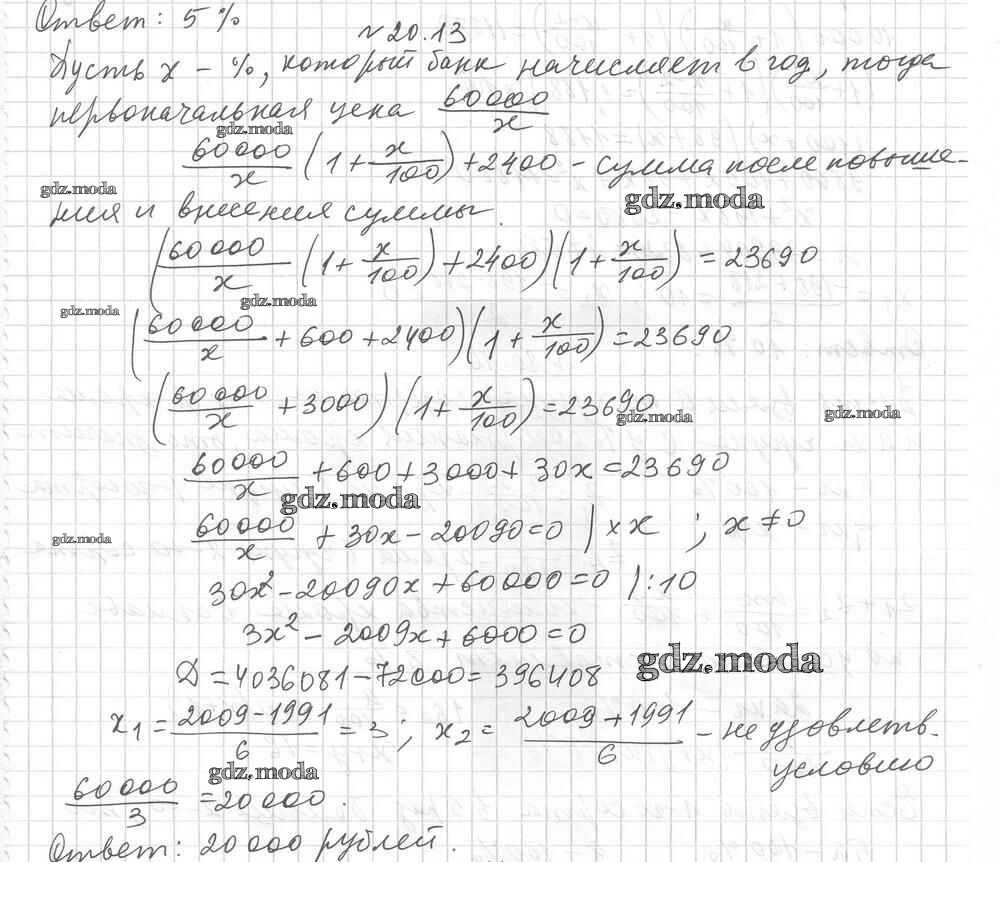 Ответ: 5 %
№ 20.13
Пусть x - %, который банк начисляет в год, тогда
первоначальная цена 60000/x
gdz.moda
60000/x (1 + x/100) + 2400 - сумма после повыше-
gdz.moda
gdz.moda
ния и внесения суммы.
(60000/x (1 + x/100) + 2400)(1 + x/100) = 23690
gdz.moda
gdz.moda
(60000/x + 600 + 2400)(1 + x/100) = 23690
(60000/x + 3000)(1 + x/100) = 23690
gdz.moda
gdz.moda
60000/x + 600 + 3000 + 30x = 23690
gdz.moda
60000/x + 30x - 20090 = 0 | × x ; x ≠ 0
gdz.moda
30x² - 20090x + 60000 = 0 |:10
3x² - 2009x + 6000 = 0
gdz.moda
Д = 4036081 - 72000 = 396408
x₁ = (2009 - 1991)/6 = 3 ; x₂ = (2009 + 1991)/6 - не удовлетв.
условию
gdz.moda
60000/3 = 20000.
Ответ: 20000 рублей.